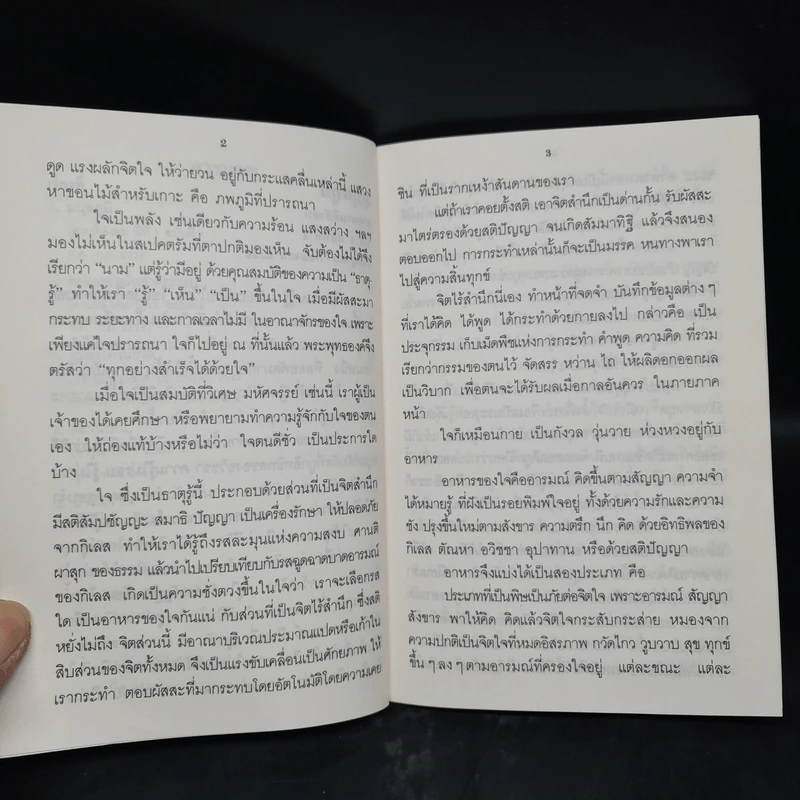 2
ดูด แรงผลักจิตใจ ให้ว่ายวน อยู่กับกระแสคลื่นเหล่านี้ แสวง
หาขอนไม้สำหรับเกาะ คือ ภพภูมิที่ปรารถนา
ใจเป็นพลัง เช่นเดียวกับความร้อน แสงสว่าง ฯลฯ
มองไม่เห็นในสเปคตรัมที่ตาปกติมองเห็น จับต้องไม่ได้จึง
เรียกว่า “นาม” แต่รู้ว่ามีอยู่ ด้วยคุณสมบัติของความเป็น “ธาตุ-
รู้” ทำให้เรา “รู้” “เห็น” “เป็น” ขึ้นในใจ เมื่อมีผัสสะมา
กระทบ ระยะทาง และกาลเวลาไม่มี ในอาณาจักรของใจ เพราะ
เพียงแค่ใจปรารถนา ใจก็ไปอยู่ ณ ที่นั้นแล้ว พระพุทธองค์จึง
ตรัสว่า “ทุกอย่างสำเร็จได้ด้วยใจ”
เมื่อใจเป็นสมบัติที่วิเศษ มหัศจรรย์ เช่นนี้ เราผู้เป็น
เจ้าของได้เคยศึกษา หรือพยายามทำความรู้จักกับใจของตน
เอง ให้ถ่องแท้บ้างหรือไม่ว่า ใจตนดีชั่ว เป็นประการใด
บ้าง
ใจ ซึ่งเป็นธาตุรู้นี้ ประกอบด้วยส่วนที่เป็นจิตสำนึก
มีสติสัมปชัญญะ สมาธิ ปัญญา เป็นเครื่องรักษา ให้ปลอดภัย
จากกิเลส ทำให้เราได้รู้ถึงรสละมุนแห่งความสงบ ศานติ
ผาสุก ของธรรม แล้วนำไปเปรียบเทียบกับรสฉูดฉาดบาดอารมณ์
ของกิเลส เกิดเป็นความชั่งตวงขึ้นในใจว่า เราจะเลือกรส
ใด เป็นอาหารของใจกันแน่ กับส่วนที่เป็นจิตไร้สำนึก ซึ่งสติ
หยั่งไม่ถึง จิตส่วนนี้ มีอาณาบริเวณประมาณแปดหรือเก้าใน
สิบส่วนของจิตทั้งหมด จึงเป็นแรงขับเคลื่อนเป็นศักยภาพ ให้
เรากระทำ ตอบผัสสะที่มากระทบโดยอัตโนมัติโดยความเคย
3
ชิน ที่เป็นรากเหง้าสันดานของเรา
แต่ถ้าเราคอยตั้งสติ เอาจิตสำนึกเป็นด่านกั้น รับผัสสะ
มาไตร่ตรองด้วยสติปัญญา จนเกิดสัมมาทิฐิ แล้วจึงสนอง
ตอบออกไป การกระทำเหล่านั้นก็จะเป็นมรรค หนทางพาเรา
ไปสู่ความสิ้นทุกข์
จิตไร้สำนึกนี่เอง ทำหน้าที่จดจำ บันทึกข้อมูลต่าง ๆ
ที่เราได้คิด ได้พูด ได้กระทำด้วยกายลงไป กล่าวคือ เป็น
ประจุกรรม เก็บเม็ดพืชแห่งการกระทำ คำพูด ความคิด ที่รวม
เรียกว่ากรรมของตนไว้ จัดสรร หว่าน ไถ ให้ผลิตอกออกผล
เป็นวิบาก เพื่อตนจะได้รับผลเมื่อกาลอันควร ในภายภาค
หน้า
ใจก็เหมือนกาย เป็นกังวล วุ่นวาย ห่วงหวงอยู่กับ
อาหาร
อาหารของใจคืออารมณ์ คิดขึ้นตามสัญญา ความจำ
ได้หมายรู้ ที่ฝังเป็นรอยพิมพ์ใจอยู่ ทั้งด้วยความรักและความ
ชัง ปรุงขึ้นใหม่ตามสังขาร ความตรึก นึก คิด ด้วยอิทธิพลของ
กิเลส ตัณหา อวิชชา อุปาทาน หรือด้วยสติปัญญา
อาหารจึงแบ่งได้เป็นสองประเภท คือ
ประเภทที่เป็นพิษเป็นภัยต่อจิตใจ เพราะอารมณ์ สัญญา
สังขาร พาให้คิด คิดแล้วจิตใจกระสับกระส่าย หมองจาก
ความปกติเป็นจิตใจที่หมดอิสรภาพ กวัดไกว วูบวาบ สุข ทุกข์
ขึ้น ๆ ลง ๆ ตามอารมณ์ที่ครองใจอยู่ แต่ละขณะ แต่ละ